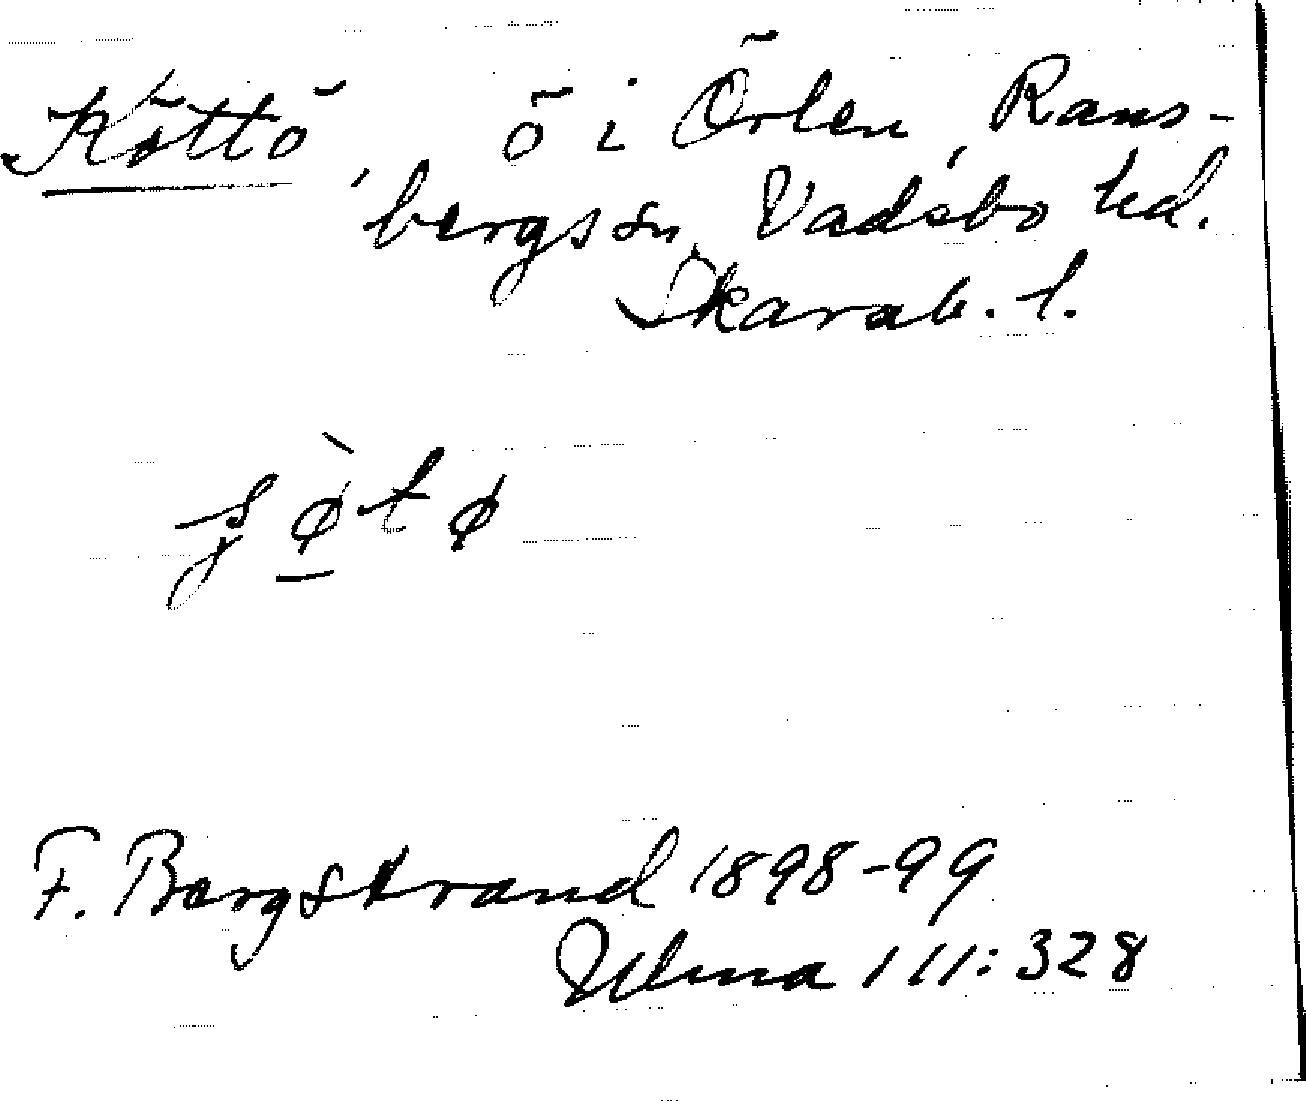 Köttö, ö i Örlen, Rans-
bergs sn, Vadsbo hd.
Skarab. l.
F. Bergstrand 1898-99
Ulma 111:328